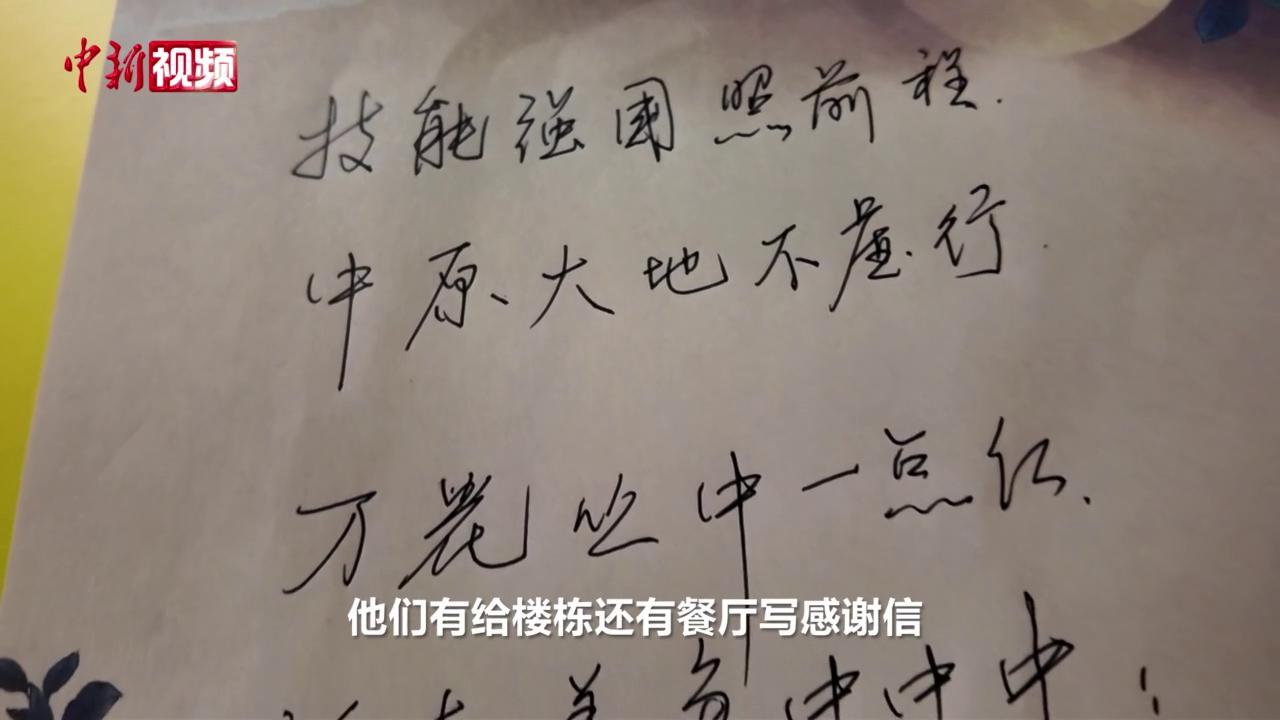 中新视频
技能强国照前程.
中原大地不虚行.
万花丛中一点红、
他们有给楼栋还有餐厅写感谢信
中中中!